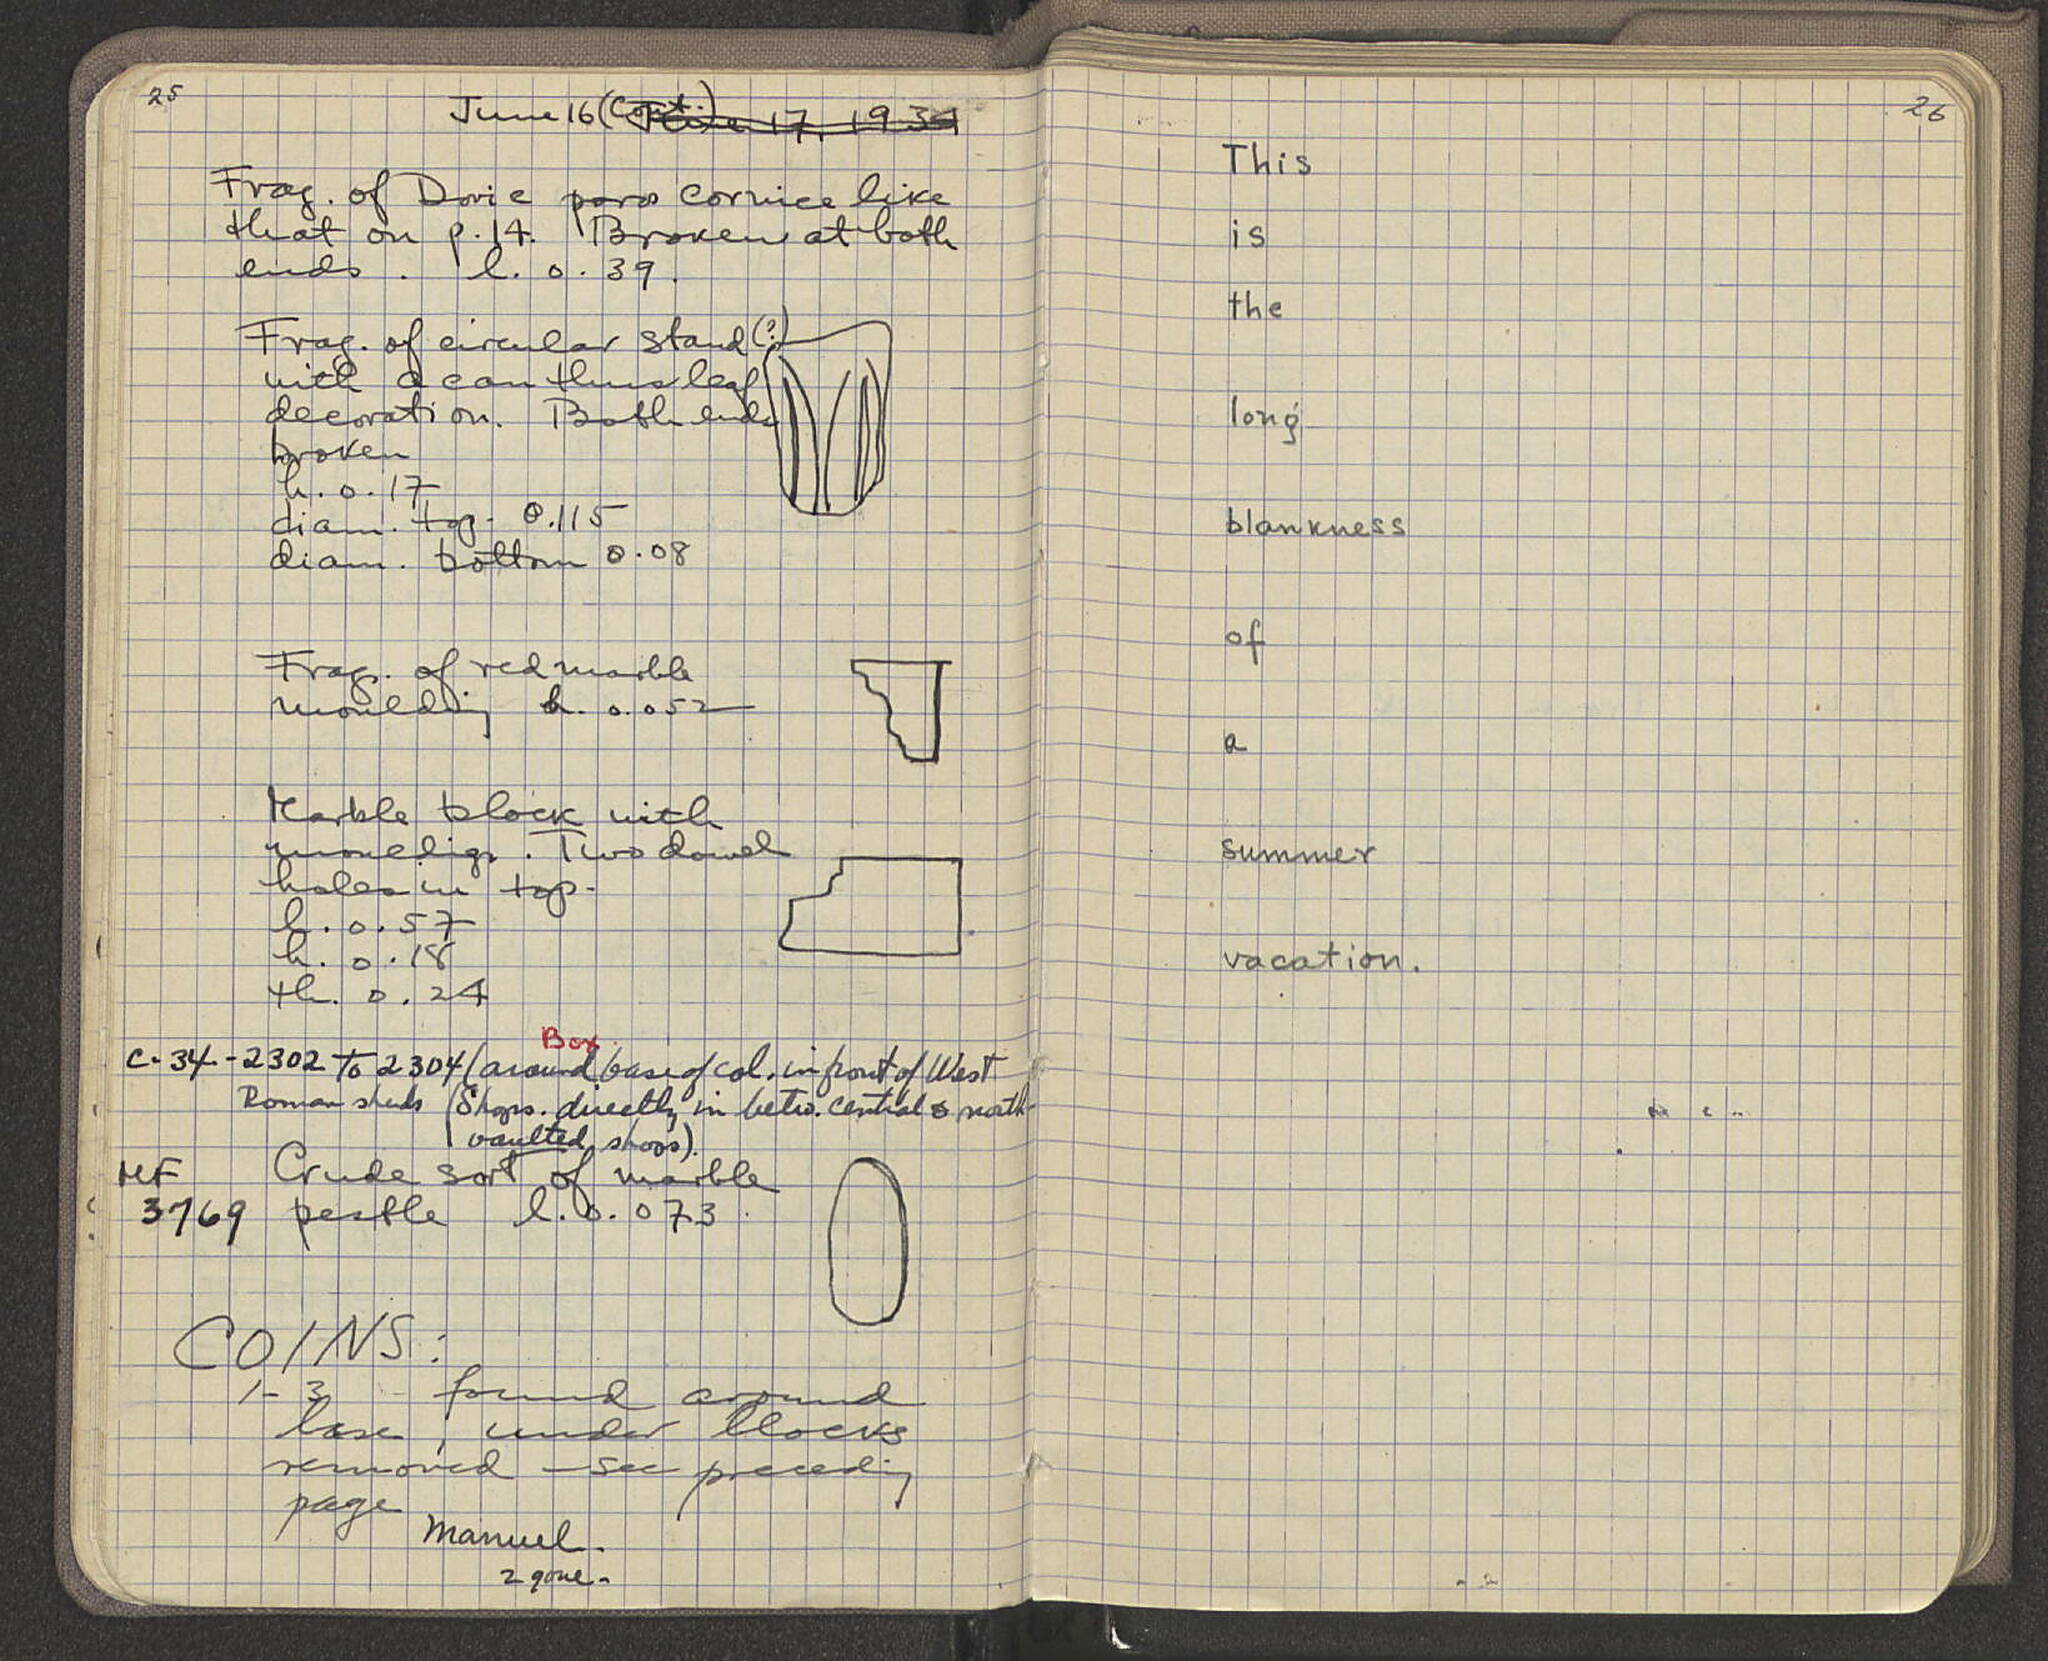 25
June 16 (Cont.) June 17, 1934
Frag. of Doric poros cornice like
that on p. 14. Broken at both
ends. l. 0.39.
Frag. of circular stand (?)
with acanthus leaf
decoration. Both ends
broken
h. 0.17
diam. top 0.115
diam. bottom 0.08
Frag. of red marble
moulding h. 0.052
Marble block with
mouldigs. Two dowel
holes in top.
l. 0.57
h. 0.18
th. 0.24
Box
C-34-2302 To 2304 (around base of col. in front of West
Roman sheds (Shops. directly in betw. central & north
vaulted shops).
MF Crude sort of marble
3769 pestle l. 0.073.
COINS:
1-3 - found around
base, under blocks
removed - see preceding
page
Manuel.
2 gone.
26
This
is
the
long
blankness
of
a
summer
vacation.